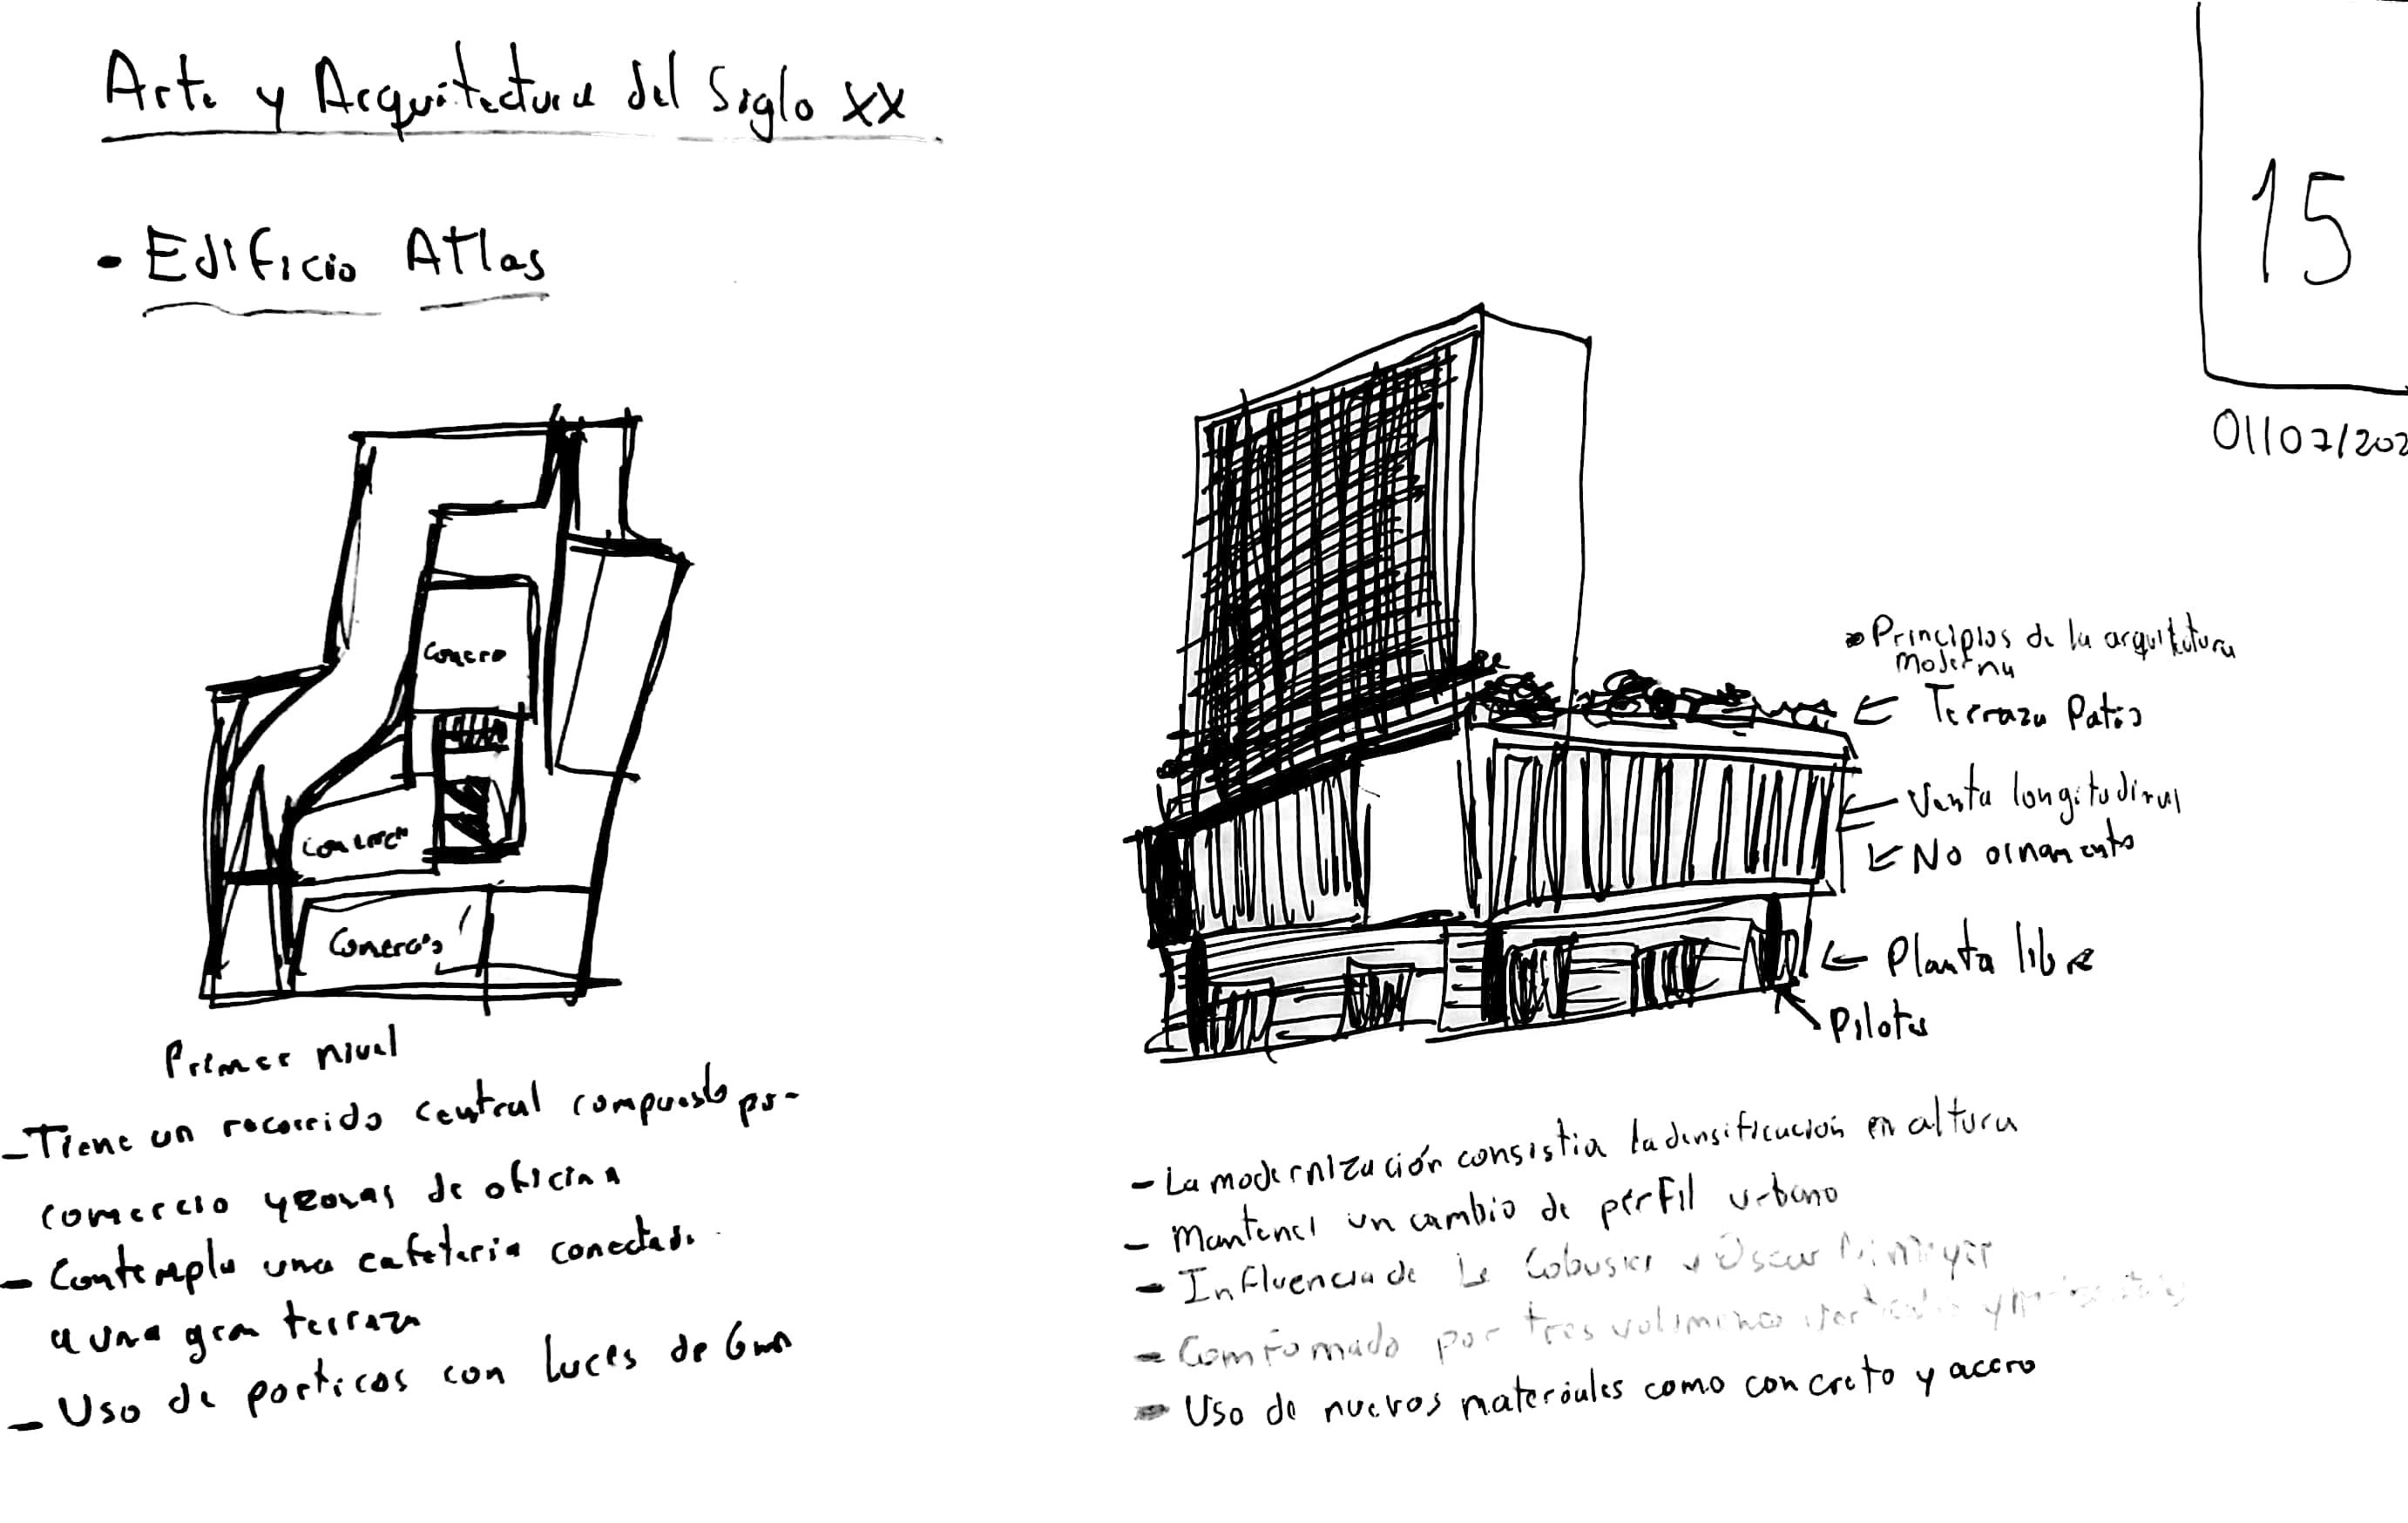 Arte y Arquitectura del Siglo XX
15
- Edificio Atlas
01/07/202
Comercio
Comercio
Comercio
Primer nivel
- Tiene un recorrido central compuesto por
comercio y zonas de oficina
- Contempla una cafeteria conectada
a una gran terraza
- Uso de porticos con luces de 6m
Principios de la arquitetura
moderna
Terraza Patio
Venta longitudinal
No ornamento
Planta libre
Pilotes
- La modernización consistia la densificación en altura
- Mantener un cambio de perfil urbano
- Influencia de Le Cobusier y Oscar Nimeyer
- Comformado por tres volumenes
- Uso de nuevos materiales como concreto y acero